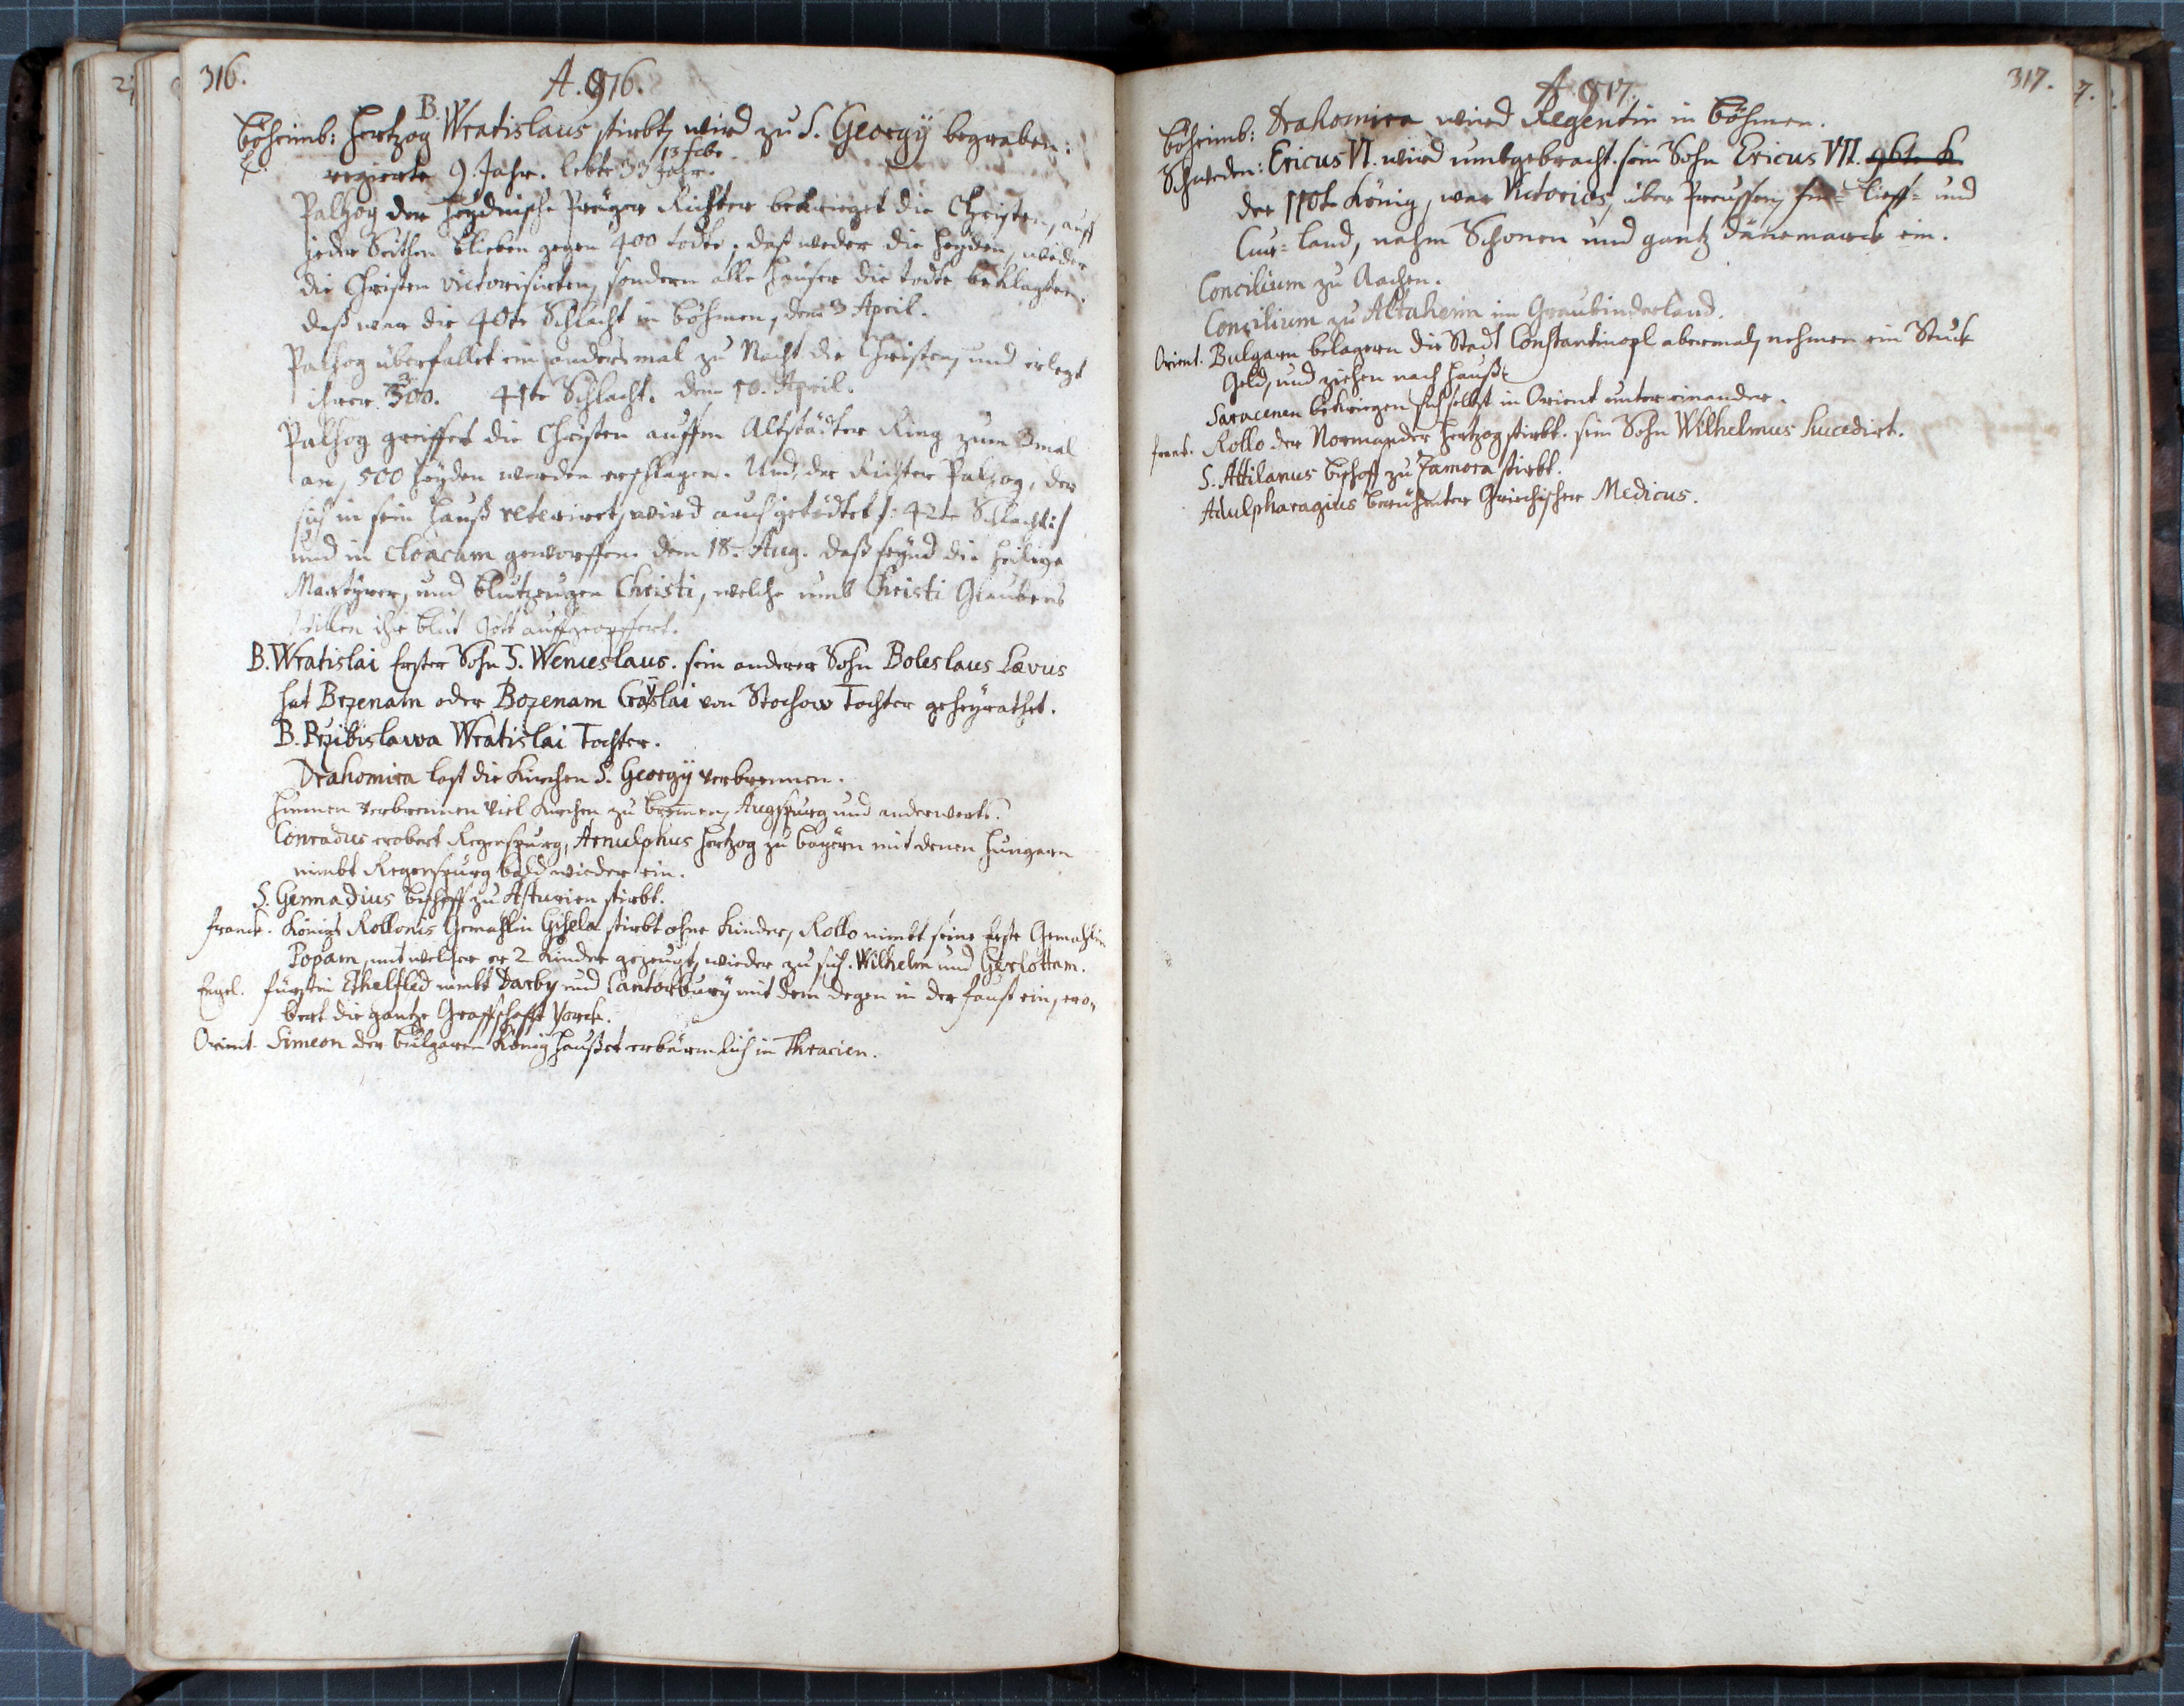 316.
A. 916.
Böheimb: Hertzog B. Wratislaus stirbt, wird zu S. Georgÿ begraben.
13 febr.
regierte 9. Jahr. lebte 33 Jahr.
Palhog der Heydnische Prager Richter bekrieget die Christen, auf
jeder Seithen blieben gegen 400 todte, daß weder die Heyden, weder
die Christen victorisirten, sondern alle Häuser die todte beklagten.
daß war die 40te Schlacht in Böhmen, den 3 April.
Palhog überfallet ein andersmal zu Nacht die Christen, und erlegt
ihrer 300. 41te Schlacht. den 10. April.
Palhog greiffet die Christen auffm Altstädter Ring zum 3mal
an, 500 Heyden werden erschlagen. Und der Richter Palhog, der
sich in sein Hauß reteriret, wird auch getödtet /: 42te Schlacht :/
und in Cloacam geworffen. dem 18. Aug. daß seynd die Heilige
Martyrer, und Blutzeugen Christi, welche umb Christi Glaubens
Willen ihr Blut Gott auffgeopffert.
B. Wratislai Erster Sohn S. Wenceslaus. sein anderer Sohn Boleslaus Lævus
hat Brzenam oder Bozenam von Stochow Tochter geheyrathet.
B. Przibislawa Wratislai Tochter.
Drahomira last die Kirchen S. Georgÿ verbrennen.
Hunnen verbrennen viel Kirchen zu Bremen, Augspurg und anderwerts.
Conradus erobert Regenspurg, Arnulphus Hertzog zu Bayern mit denen Hungarn
nimbt Regenspurg bald wieder ein.
S. Gennadius Bischoff zu Asturien stirbt.
Franck. Königs Rollonis Gemahlin Gisela stirbt ohne Kinder, Rollo nimbt seine Erste Gemahlin
Popam, mit welcher er 2 Kinder gezeugt, wieder zu sich. Wilhelm und Gerlottam.
Engel. Fürstin Ethelfled nimbt Darby und Cantorbury mit dem Degen in der Faust ein, ero-
bert die gantze Graffschafft Yorck.
Orient. Simeon der Bulgaren König hauset erbärmlich in Thracien.
317.
A. 917.
Böheimb: Drahomira wird Regentin in Böhmen.
Schweden: Ericus VI. wird umbgebracht. sein Sohn Ericus VII. 96te K.
der 110te König, war Victorios, über Preussen, Fin= Lieff= und
Cur=land, nahm Schonen und gantz Dänemarck ein.
Concilium zu Aachen.
Concilium zu Altaheim im Graubinderland.
Orient. Bulgarn belagern die Stadt Constantinopl abermal, nehmen ein Stuck
Geld, und ziehen nach Hauß.
Saracenen bekriegen sich selbst in Orient unter einander.
Franck. Rollo der Normander Hertzog stirbt. sein Sohn Wilhelmus Succedirt.
S. Attilanus Bischoff zu Zamora stirbt.
Adulpharagius berühmter Griechischer Medicus.